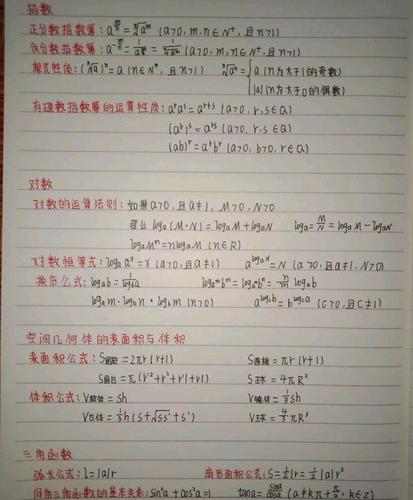 指数
正分数指数幂: a^(m/n) = ⁿ√(a^m) (a>0, m, n∈N⁺, 且n>1)
负分数指数幂: a^(-m/n) = 1/a^(m/n) = 1/ⁿ√(a^m) (a>0, m, n∈N⁺, 且n>1)
根式性质: (ⁿ√a)ⁿ = a (n∈N⁺, 且n>1) ⁿ√(aⁿ) = { a (n为大于1的奇数)
|a| (n为大于0的偶数)
有理数指数幂的运算性质: a^r a^s = a^(r+s) (a>0, r, s∈Q)
(a^r)^s = a^(rs) (a>0, r, s∈Q)
(ab)^r = a^r b^r (a>0, b>0, r∈Q)
对数
对数的运算法则: 如果a>0, 且a≠1, M>0, N>0
log_a(M·N) = log_a M + log_a N log_a = M/N = log_a M - log_a N
log_a Mⁿ = n log_a M (n∈R)
对数恒等式: log_a a^x = x (a>0, 且a≠1) a^(log_a N) = N (a>0, 且a≠1, N>0)
换底公式: log_a b = log_a^m b^n = log_a^m b^n = n/m log_a b
log_a m · log_b n · log_b m (n>0) a^(log_c b) = b^(log_c a) (c>0, 且c≠1)
空间几何体的表面积与体积
表面积公式: S圆柱 = 2πr(r+l) S圆锥 = πr(r+l)
S圆台 = π(r'²+r²+r'l+rl) S球 = 4πR²
体积公式: V柱体 = Sh V锥体 = 1/3 Sh
V台体 = 1/3 h(S+√SS'+S') V球 = 4/3 πR³
三角函数
弧长公式: l = |α|r 扇形面积公式: S = 1/2 lr = 1/2 |α|r²
同角三角函数的基本关系: sin²α + cos²α = 1 tanα = sinα/cosα (α≠kπ+π/2, k∈Z)